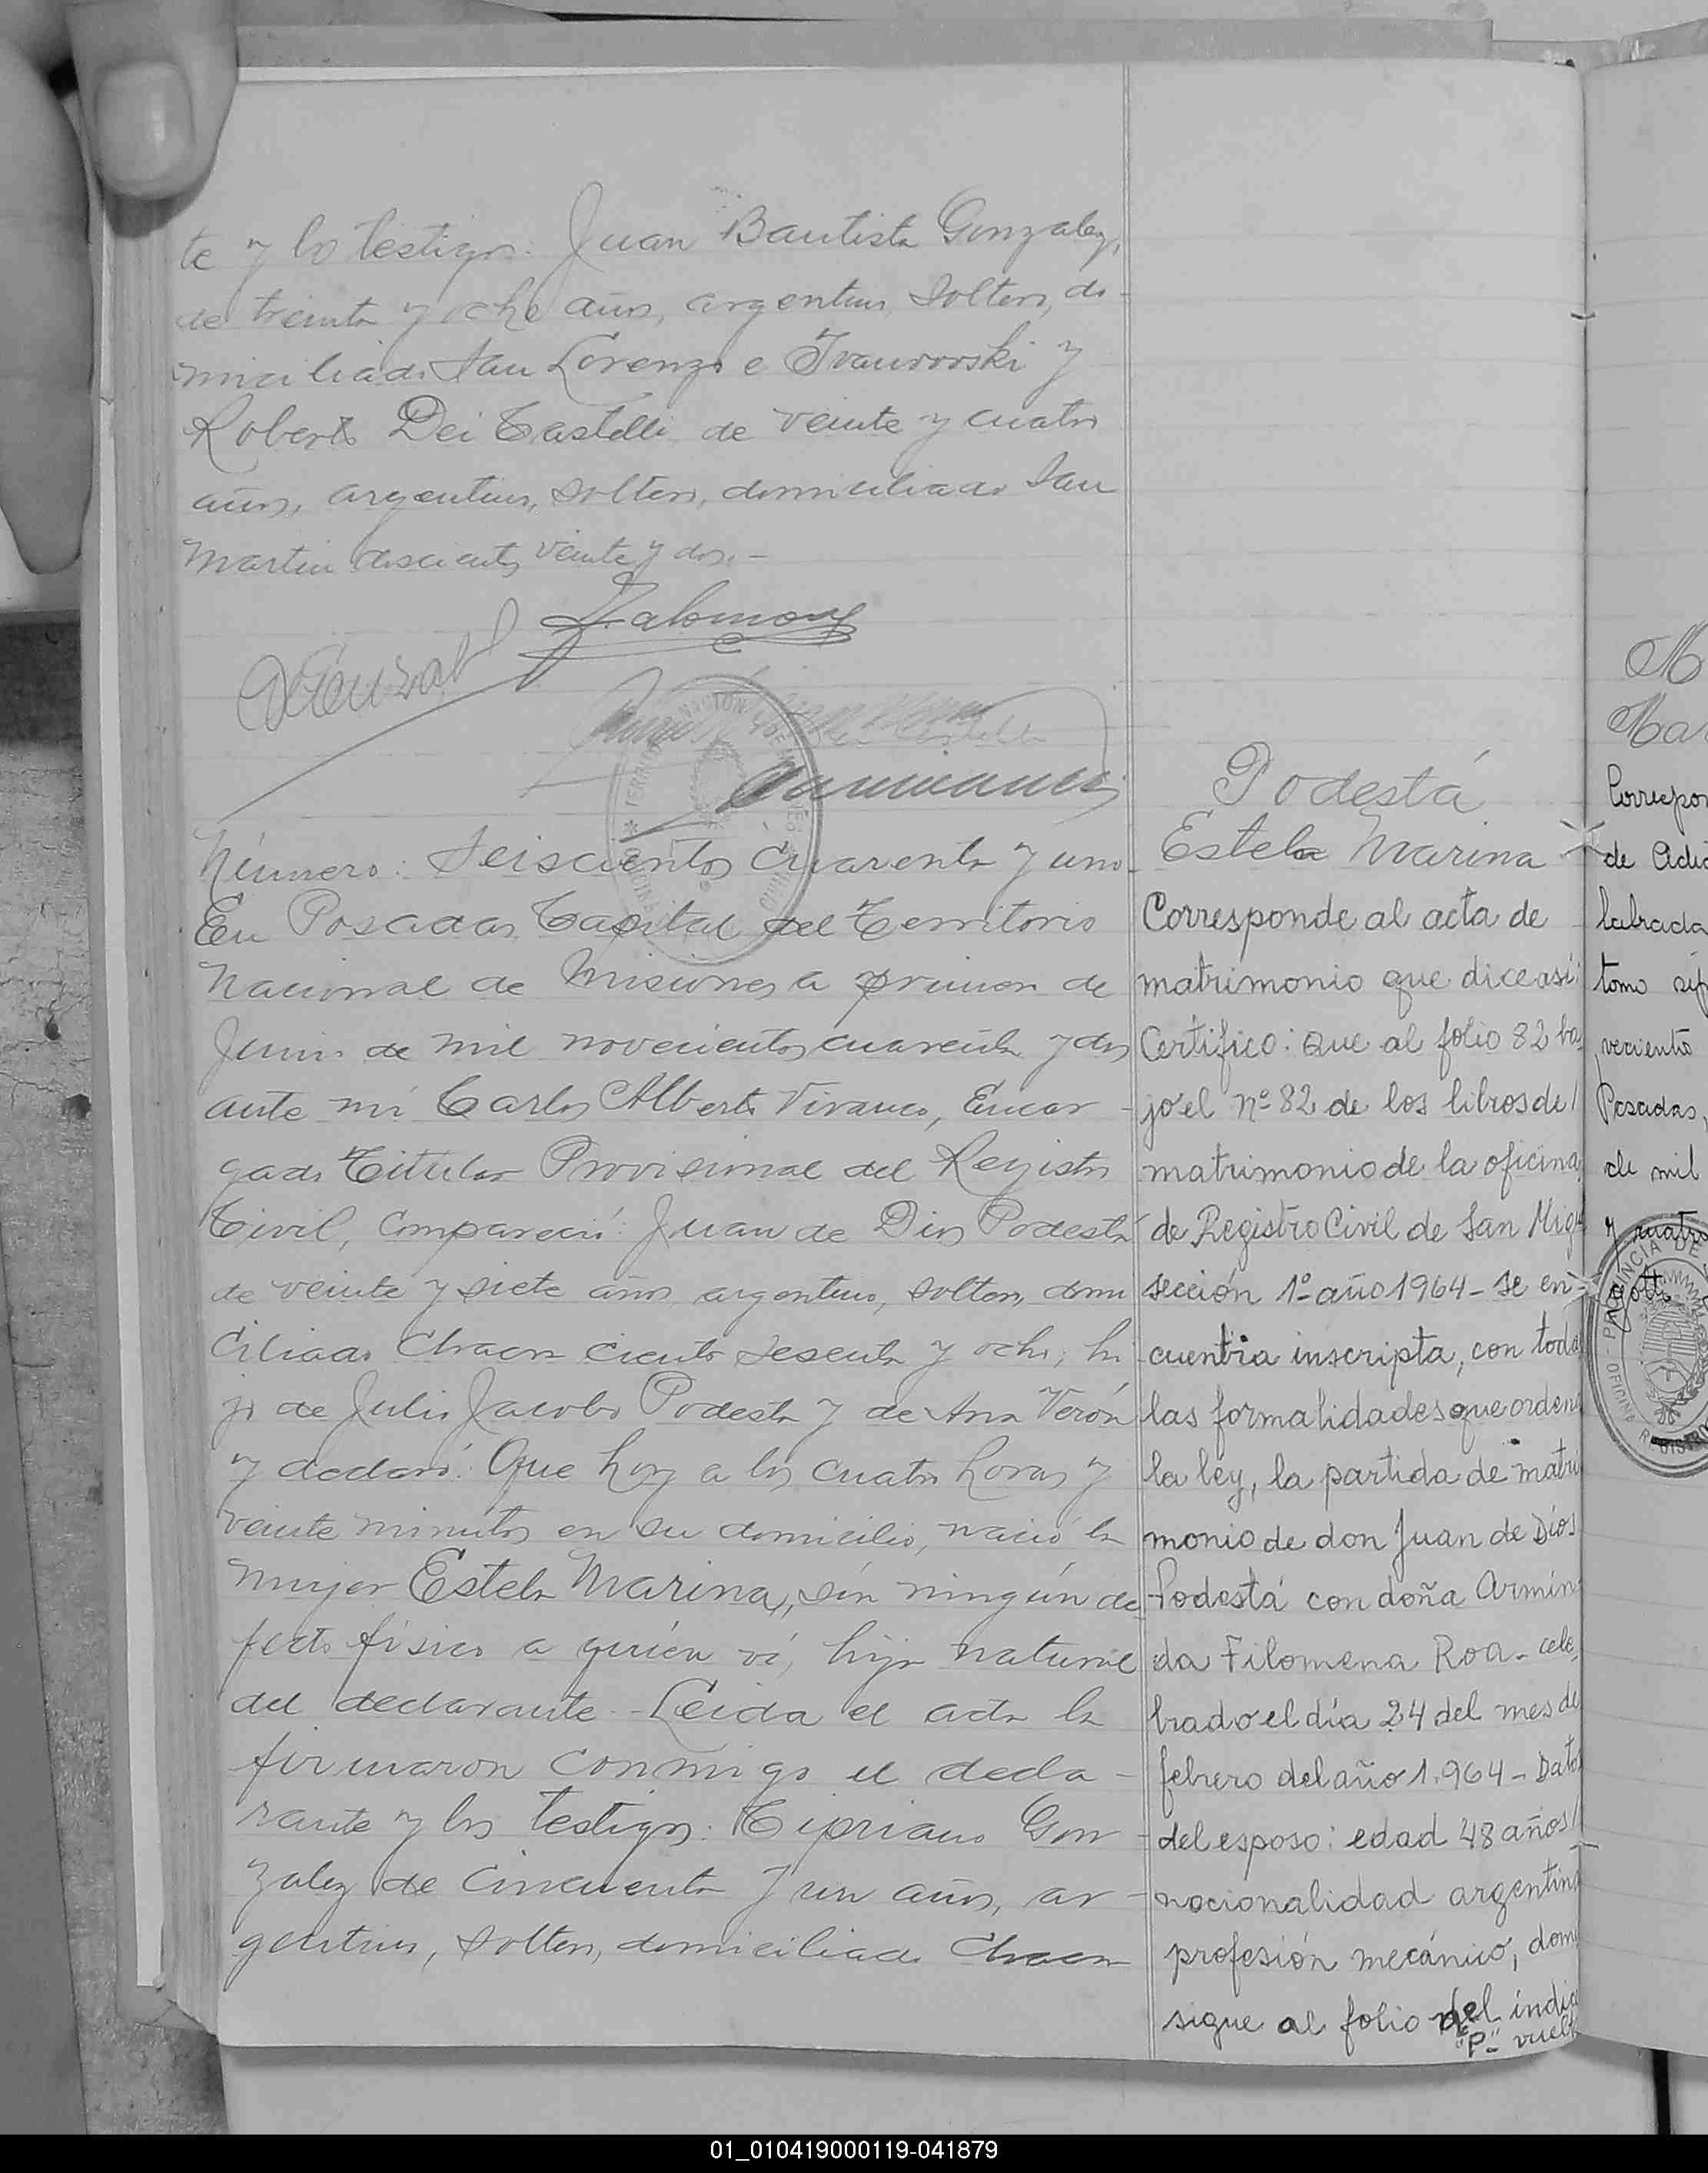 te y los testigos: Juan Bautista Gonzalez,
de treinta y ocho años, argentino, soltero, do-
miciliado San Lorenzo e Ivanowski y
Roberto Dei Castelli, de veinte y cuatro
años, argentino, soltero, domiciliado San
Martin doscientos veinte y dos.-
Número: Seiscientos cuarenta y uno-
En Posadas, Capital del Territorio
Nacional de Misiones a primero de
Junio de mil novecientos cuarenta y dos
ante mí Carlos Alberto Vivanco, Encar-
gado Titular Provisional del Registro
Civil, compareció: Juan de Dios Podestá
de veinte y siete años, argentino, soltero, domi
ciliado Chaco ciento sesenta y ocho, hi-
jo de Julio Jacobo Podesta y de Ana Verón
y declaró: Que hoy a las cuatro horas y
veinte minutos en su domicilio, nació la
mujer Estela Marina, sin ningún de
fecto físico a quién ví, hija natural
del declarante.-Leida el acta la
firmaron conmigo el decla-
rante y los testigos: Cipriano Gon-
zalez de cincuenta y un años, ar-
gentino, soltero, domiciliado Chaco
Podestá
Estela Marina
Corresponde al acta de
matrimonio que dice así:
Certifico: Que al folio 82 ba
jo el nº 82 de los libros de/
matrimonio de la oficina
de Registro Civil de San Mig
sección 1º año 1964 - se en-
cuentra inscripta, con toda
las formalidades que orden
la ley, la partida de matri
monio de don Juan de Dios
Podestá con doña Armin
da Filomena Roa - cele
brado el día 24 del mes de
febrero del año 1.964 - Dato
del esposo: edad 48 años/
nacionalidad argentina
profesión mecánico, domi
sigue al folio del índice
"P" vuelt
M
Mar
Correspon
de Adic
labrada
tomo
Posadas,
de mil
y cuatro
01_010419000119-041879